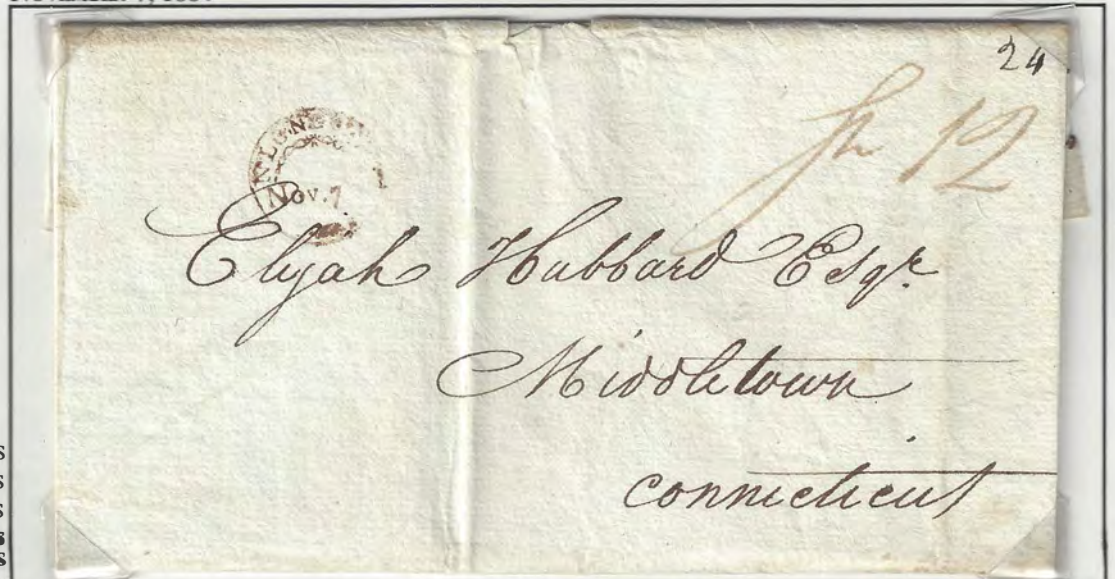 24
Sh 12
Nov. 7
Elijah Hubbard Esqr.
Middletown
Connecticut